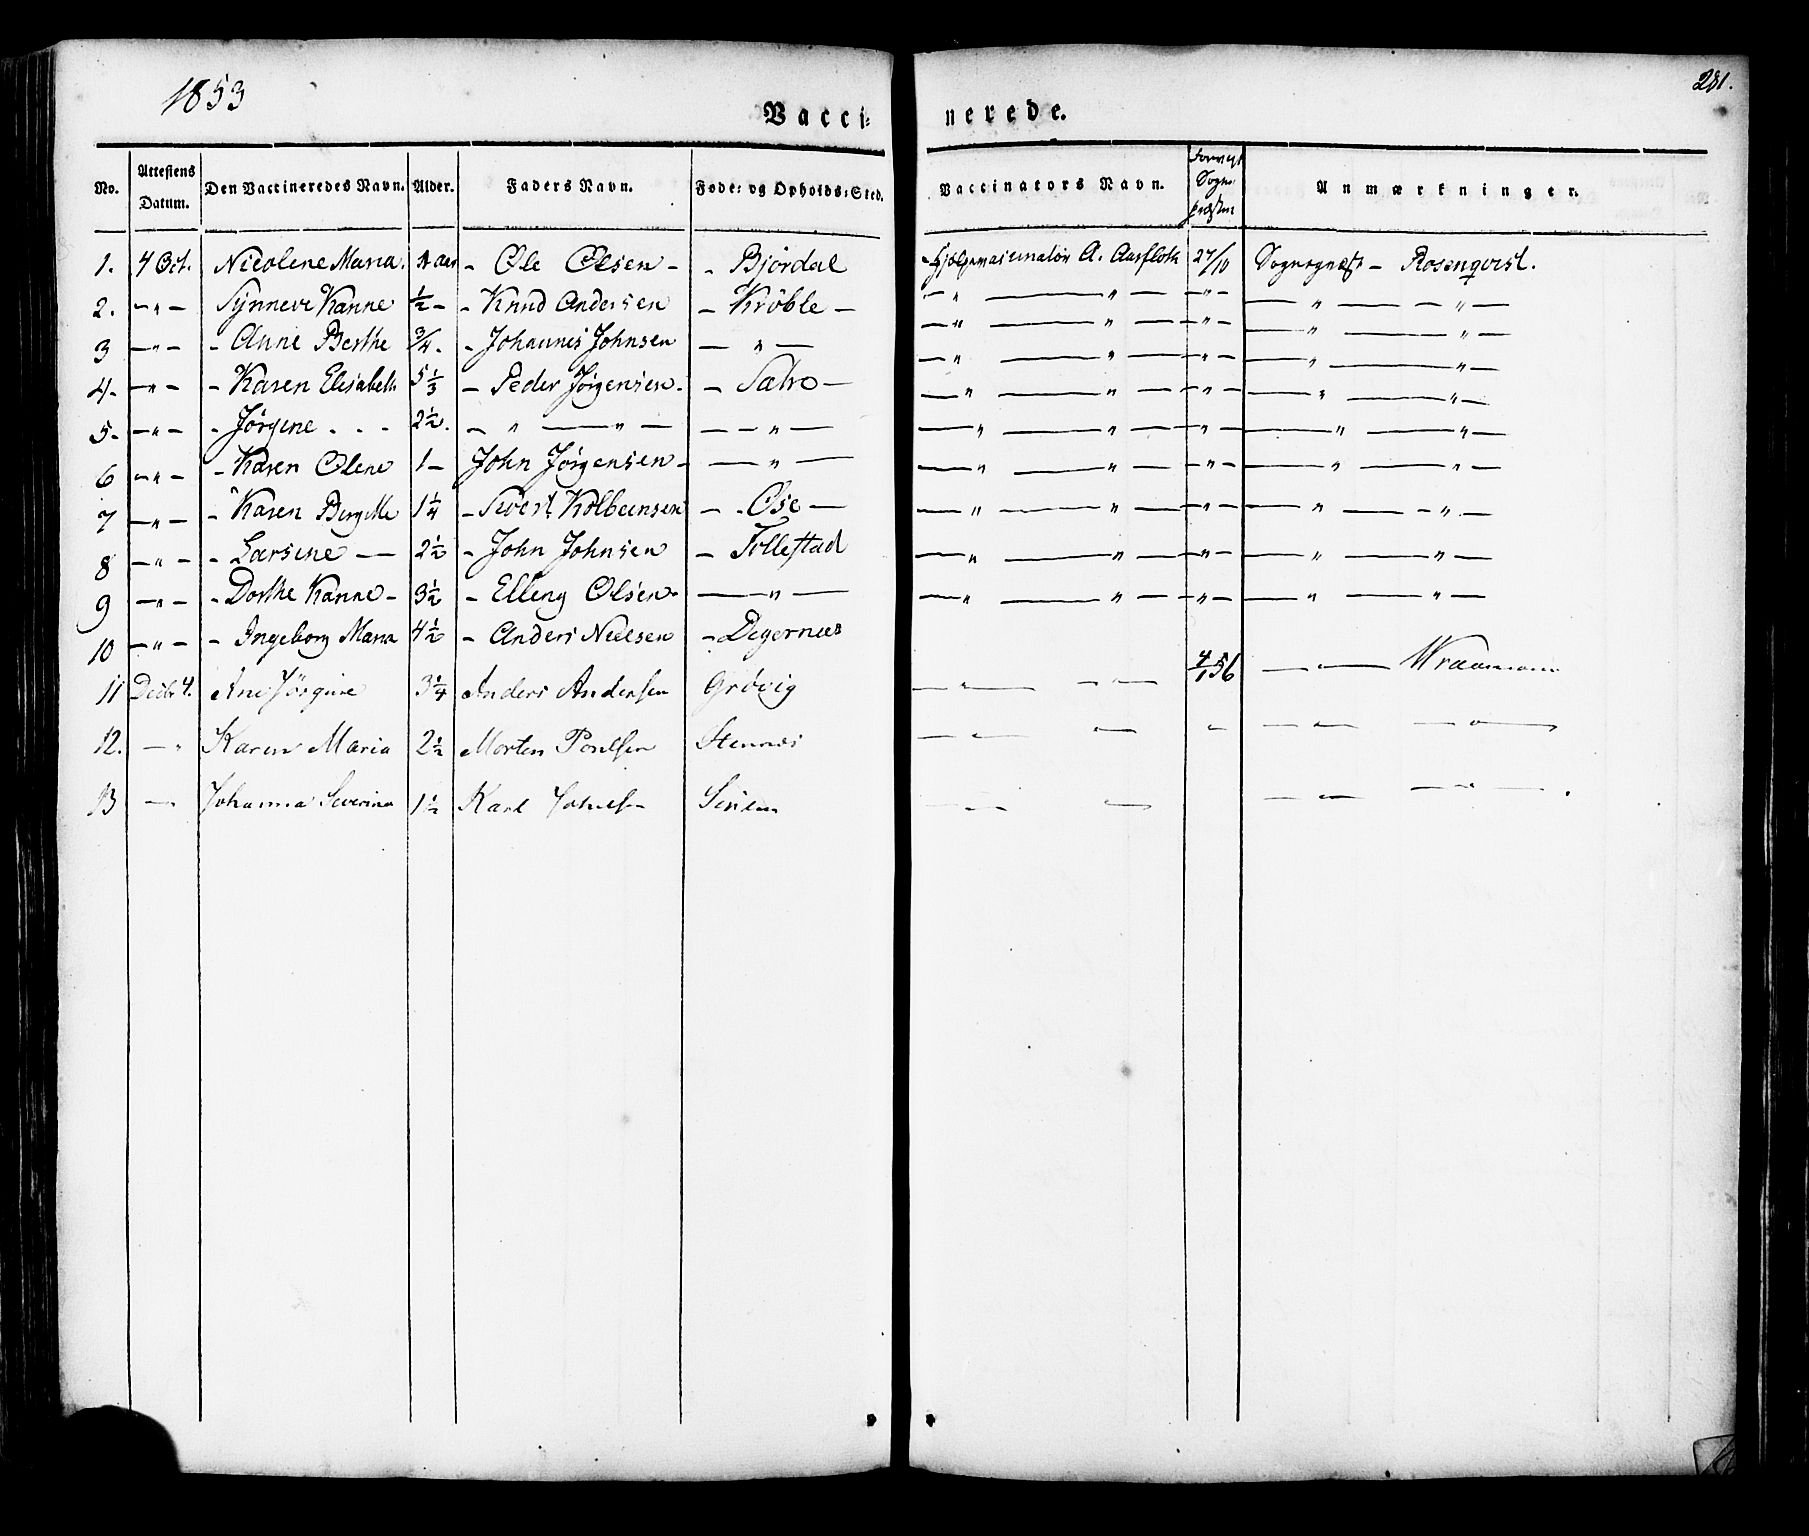 1853
281.
Vacci-nerede.
No. | Attestens Datum. | Den Vaccineredes Navn. | Alder. | Faders Navn. | Føde- og Opholds-Sted. | Vaccinators Navn. | Sogne præsten | Anmærkninger.
1. | 4 Oct. | Nicoline Maria | Aar | - Ole Olsen - | - Bjørdal | - Hjælpevaccinatør A. Aarfloth | 27/10 | Sognepræst - Rosenqvist.
2. | - " - | Synneve Hanne | ½ - | - Knud Andersen | - Krøble - | - " - " - | - " - | - " - " -
3 | - " - | - Anne Berthe | ¾ - | - Johannes Johnsen | - " - | - " - " - | - " - | - " - " -
4. | - " - | - Karen Elisabeth | 5 ⅓ | - Peder Jørgensen - | - Sætre - | - " - " - | - " - | - " - " -
5. | - " - | - Jørgine - - - | 2 ½ | - " - " - | - " - | - " - " - | - " - | - " - " -
6 | - " - | - Karen Oline | 1 - | John Jørgensen - | - " - | - " - " - | - " - | - " - " -
7 | - " - | - Karen Bergitte | 1 ¼ | - Sivert Kolbeensen | - Ose - | - " - " - | - " - | - " - " -
8 | - " - | - Larsine - | 2 ½ | - John Johnsen | - Follestad | - " - " - | - " - | - " - " -
9 | - " - | - Dorthe Hanne - | 3 ½ | - Elling Olsen - | - " - | - " - " - | - " - | - " - " -
10 | - " - | - Ingeborg Maria | 4 ½ | - Anders Nielsen | - Digernæs
11 | Decbr 4. | Ane Jørgine | 3 ¼ | Anders Andersen | Grøvig | - " - " - | 4/1 56 | - " -
12. | - " | Karen Maria | 2 ½ | Morten Poulsen | Stennes | - " - " - | - | - " - " -
13 | - " | Johanna Severine | 1 ½ | Karl | - " - " - | - " - " -